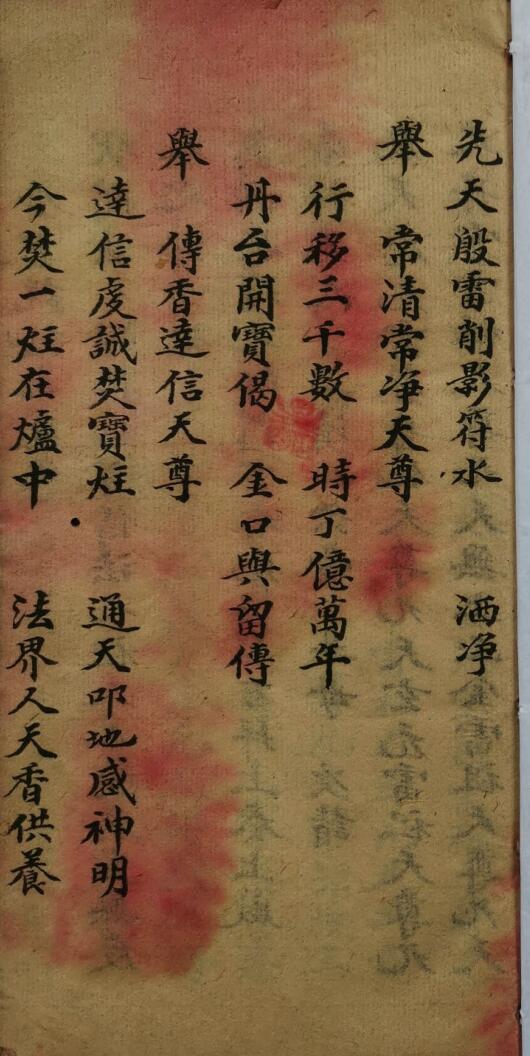 先天殷雷削影符水 洒净
舉 常清常净天尊
行移三千數 時丁億萬年
丹台開寶偈 金口與留傳
舉 傳香達信天尊
達信虔誠焚寶炷 通天叩地感神明
今焚一炷在爐中 法界人天香供養